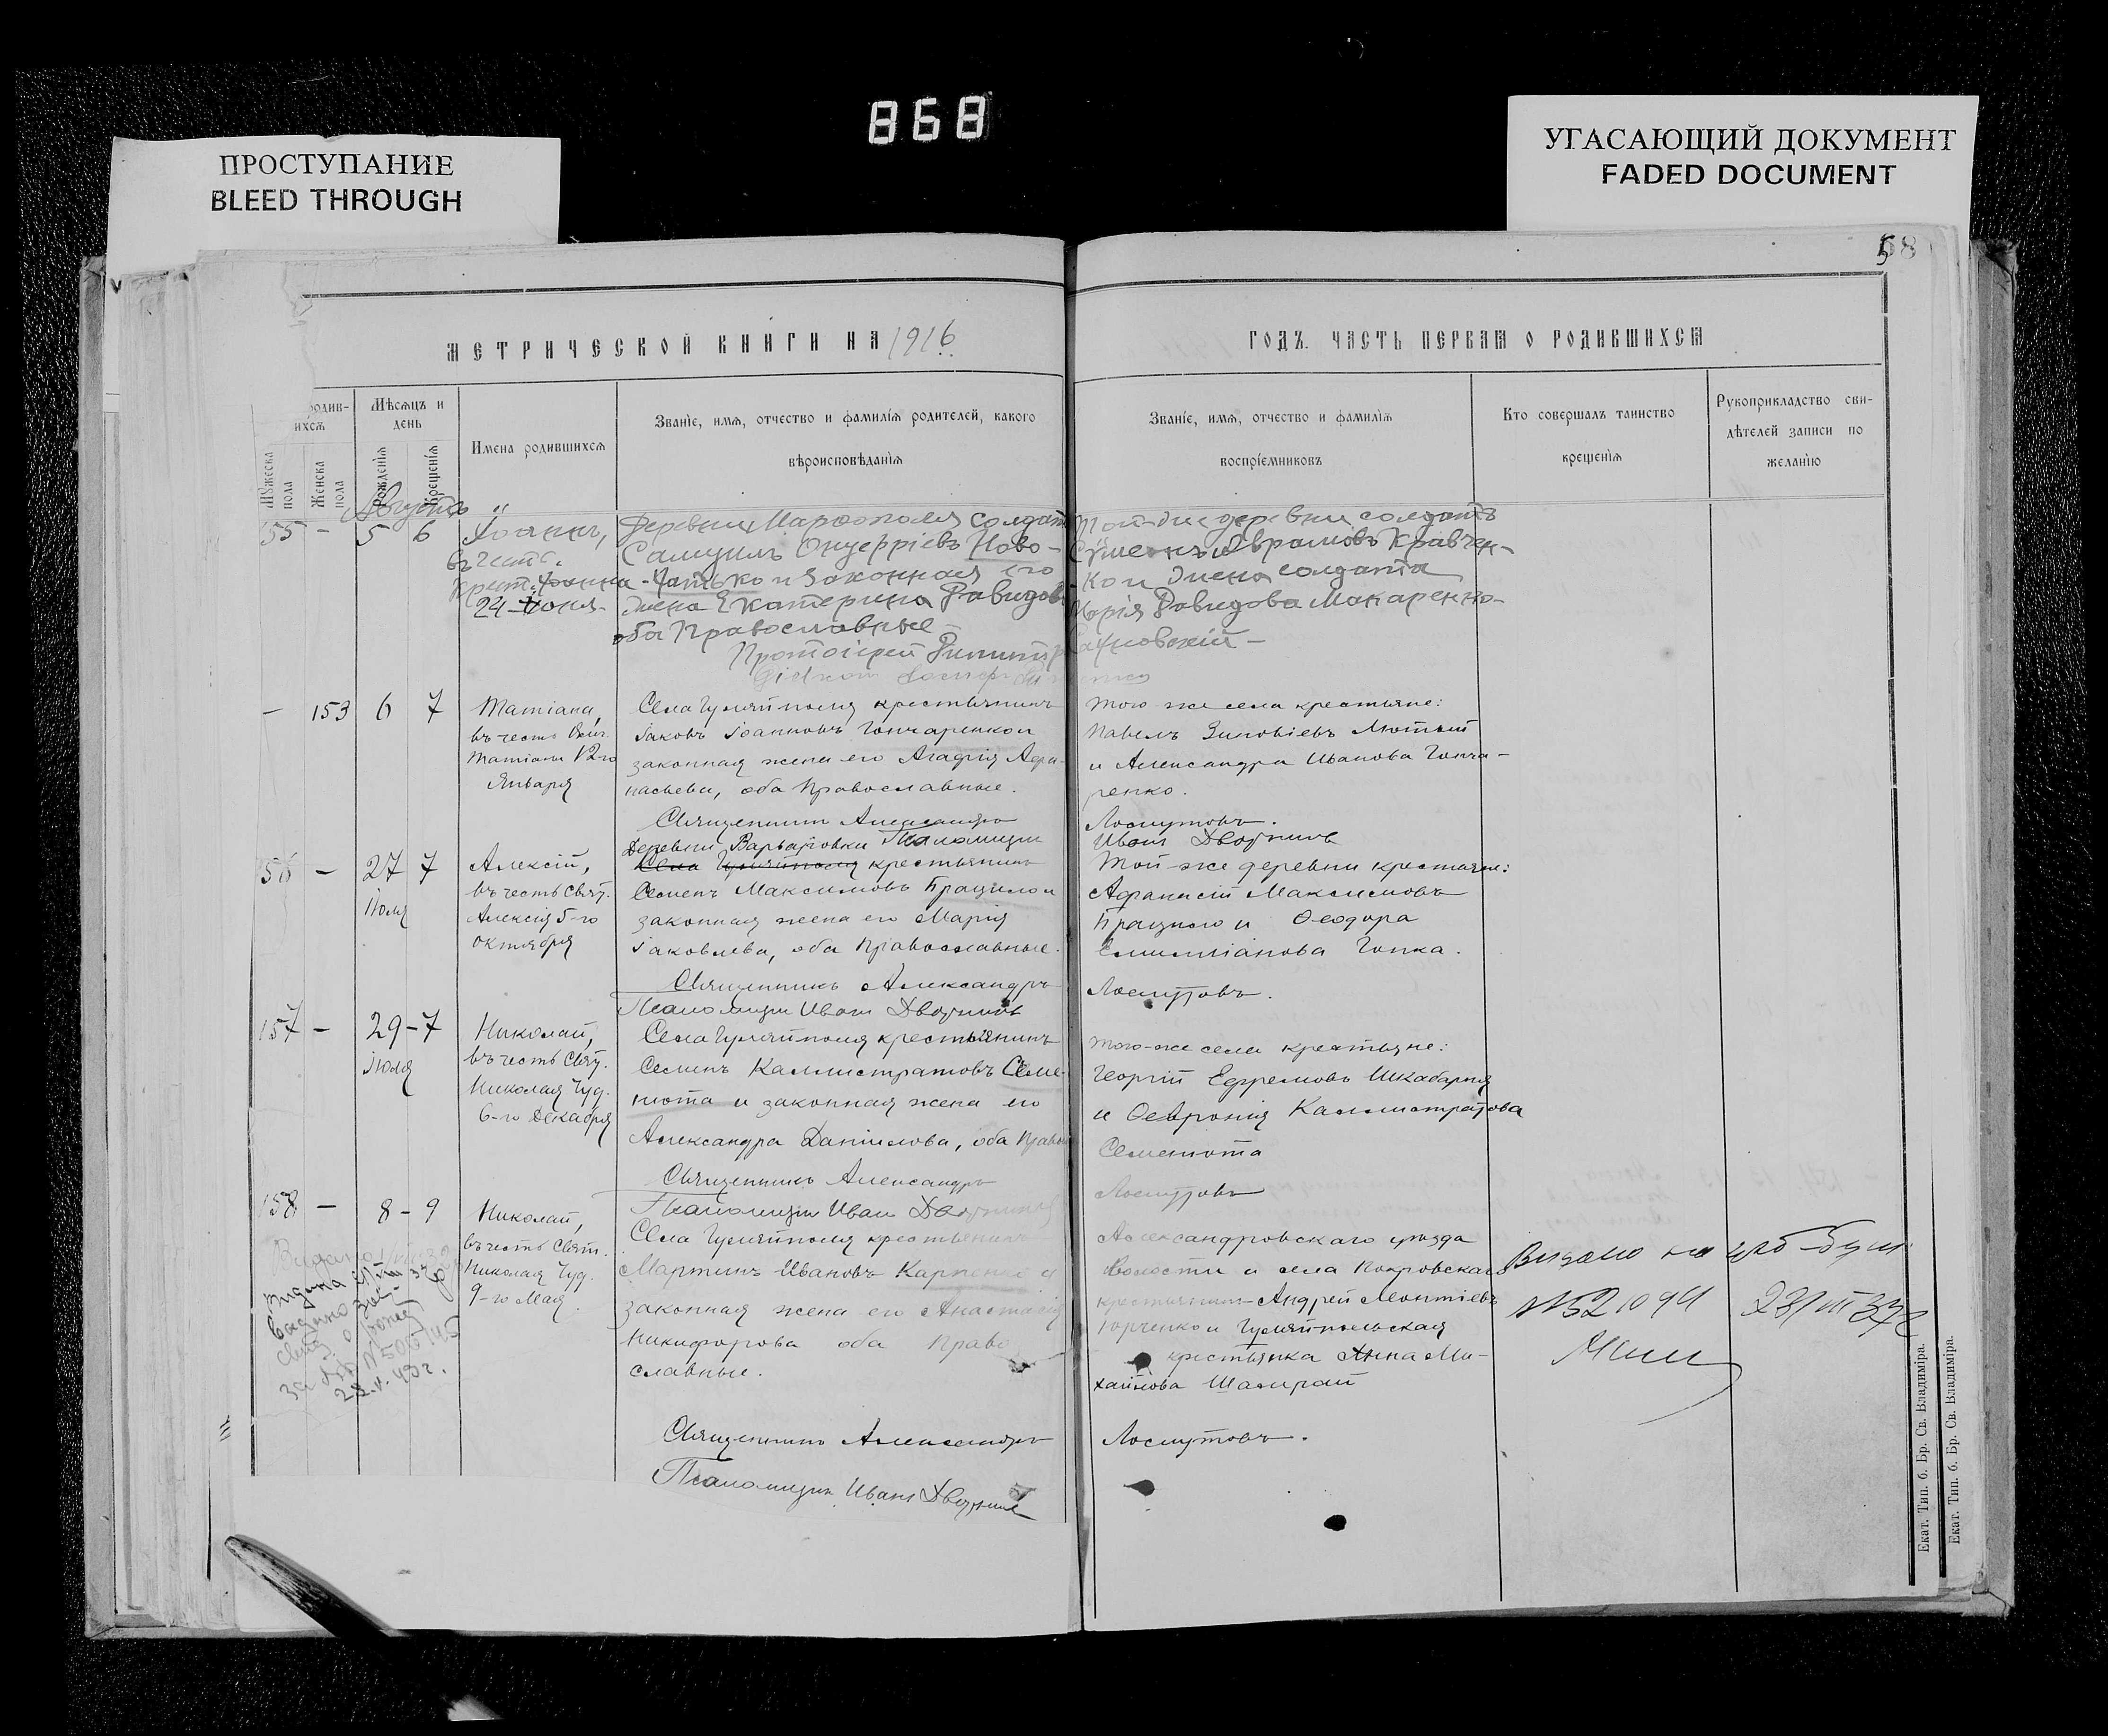 868
ПРОСТУПАНИЕ
BLEED THROUGH
УГАСАЮЩИЙ ДОКУМЕНТ
FADED DOCUMENT
58
МЕТРИЧЕСКОЙ КНИГИ НА 1916
ГОДЪ. ЧАСТЬ ПЕРВАЯ О РОДИВШИХСЯ
родив-
ихся
Мужеска
пола
Женска
пола
Мѣсяцъ и
день
Рожденія
Крещенія
Имена родившихся
Званіе, имя, отчество и фамилія родителей, какого
вѣроисповѣданія
Званіе, имя, отчество и фамилія
воспріемниковъ
Кто совершалъ таинство
крещенія
Рукоприкладство сви-
дѣтелей записи по
желанію
Августъ
55 - 5 6
Іоаннъ,
въ честь
Крест. Іоанна
24 Іюня
Деревни Марфополя солдатъ
Самуилъ Онуфріевъ Ново-
Чатько и законная его
жена Екатерина Давидова
оба Православные
Протоіерей Димитрій
Той-же деревни солдатъ
Аврамовъ Кравчен-
ко и жена солдата
Марія Давидова Макаренко
- 153 6 7
Татіана,
въ честь
Татіаны 12го
Января
Села Гуляйполя крестьянинъ
Іаковъ Іоанновъ Гончаренко и
законная жена его Агафія Афа-
насьева, оба Православные.
Священникъ Александръ
Того же села крестьяне:
Павелъ Зиновіевъ Лютый
и Александра Иванова Гонча-
ренко.
Лоскутовъ.
Псаломщикъ
Иванъ Дворникъ
56 - 27 7
Іюля
Алексій,
въ честь Свят.
Алексія 5-го
октября
Деревни Варваровки
Села Гуляйполя крестьянинъ
Семенъ Максимовъ Брацило и
законная жена его Марія
Іаковлева, оба Православные.
Священникъ Александръ
Псаломщикъ Иванъ Дворникъ
Той-же деревни крестьяне:
Афанасій Максимовъ
Брацило и Ѳеодора
Емилліанова Гопка.
Лоскутовъ.
157 - 29-7
Іюля
Николай,
въ честь Свят.
Николая Чуд.
6-го Декабря
Села Гуляйполя крестьянинъ
Каллистратовъ Семе-
нюта и законная жена его
Александра Даніилова, оба Право
Священникъ Александръ
Псаломщикъ Иванъ
Того-же села крестьяне:
Георгій Ефремовъ Шкабарня
и Ѳевронія Каллистратова
Семенюта
Лоскутовъ
158 - 8-9
Николай,
въ честь Свят.
Николая Чуд.
9-го Мая.
Села Гуляйполя крестьянинъ
Мартинъ Ивановъ Карпенко и
законная жена его Анастасія
Никифорова оба Право
славные.
Священникъ Александръ
Псаломщикъ Иванъ Дворникъ
Александровскаго уѣзда
Волости и села Покровскаго
крестьянинъ Андрей Леонтіевъ
Юрченко и Гуляйпольская
крестьянка Анна Ми-
хайлова Шамрай
Лоскутовъ.
28.V.49г.
Екат. Тип. б. Бр. Св. Владиміра.
Екат. Тип. б. Бр. Св. Владиміра.